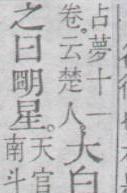 占夢十一
卷。云楚人。大白
之曰朙星。天官
南斗